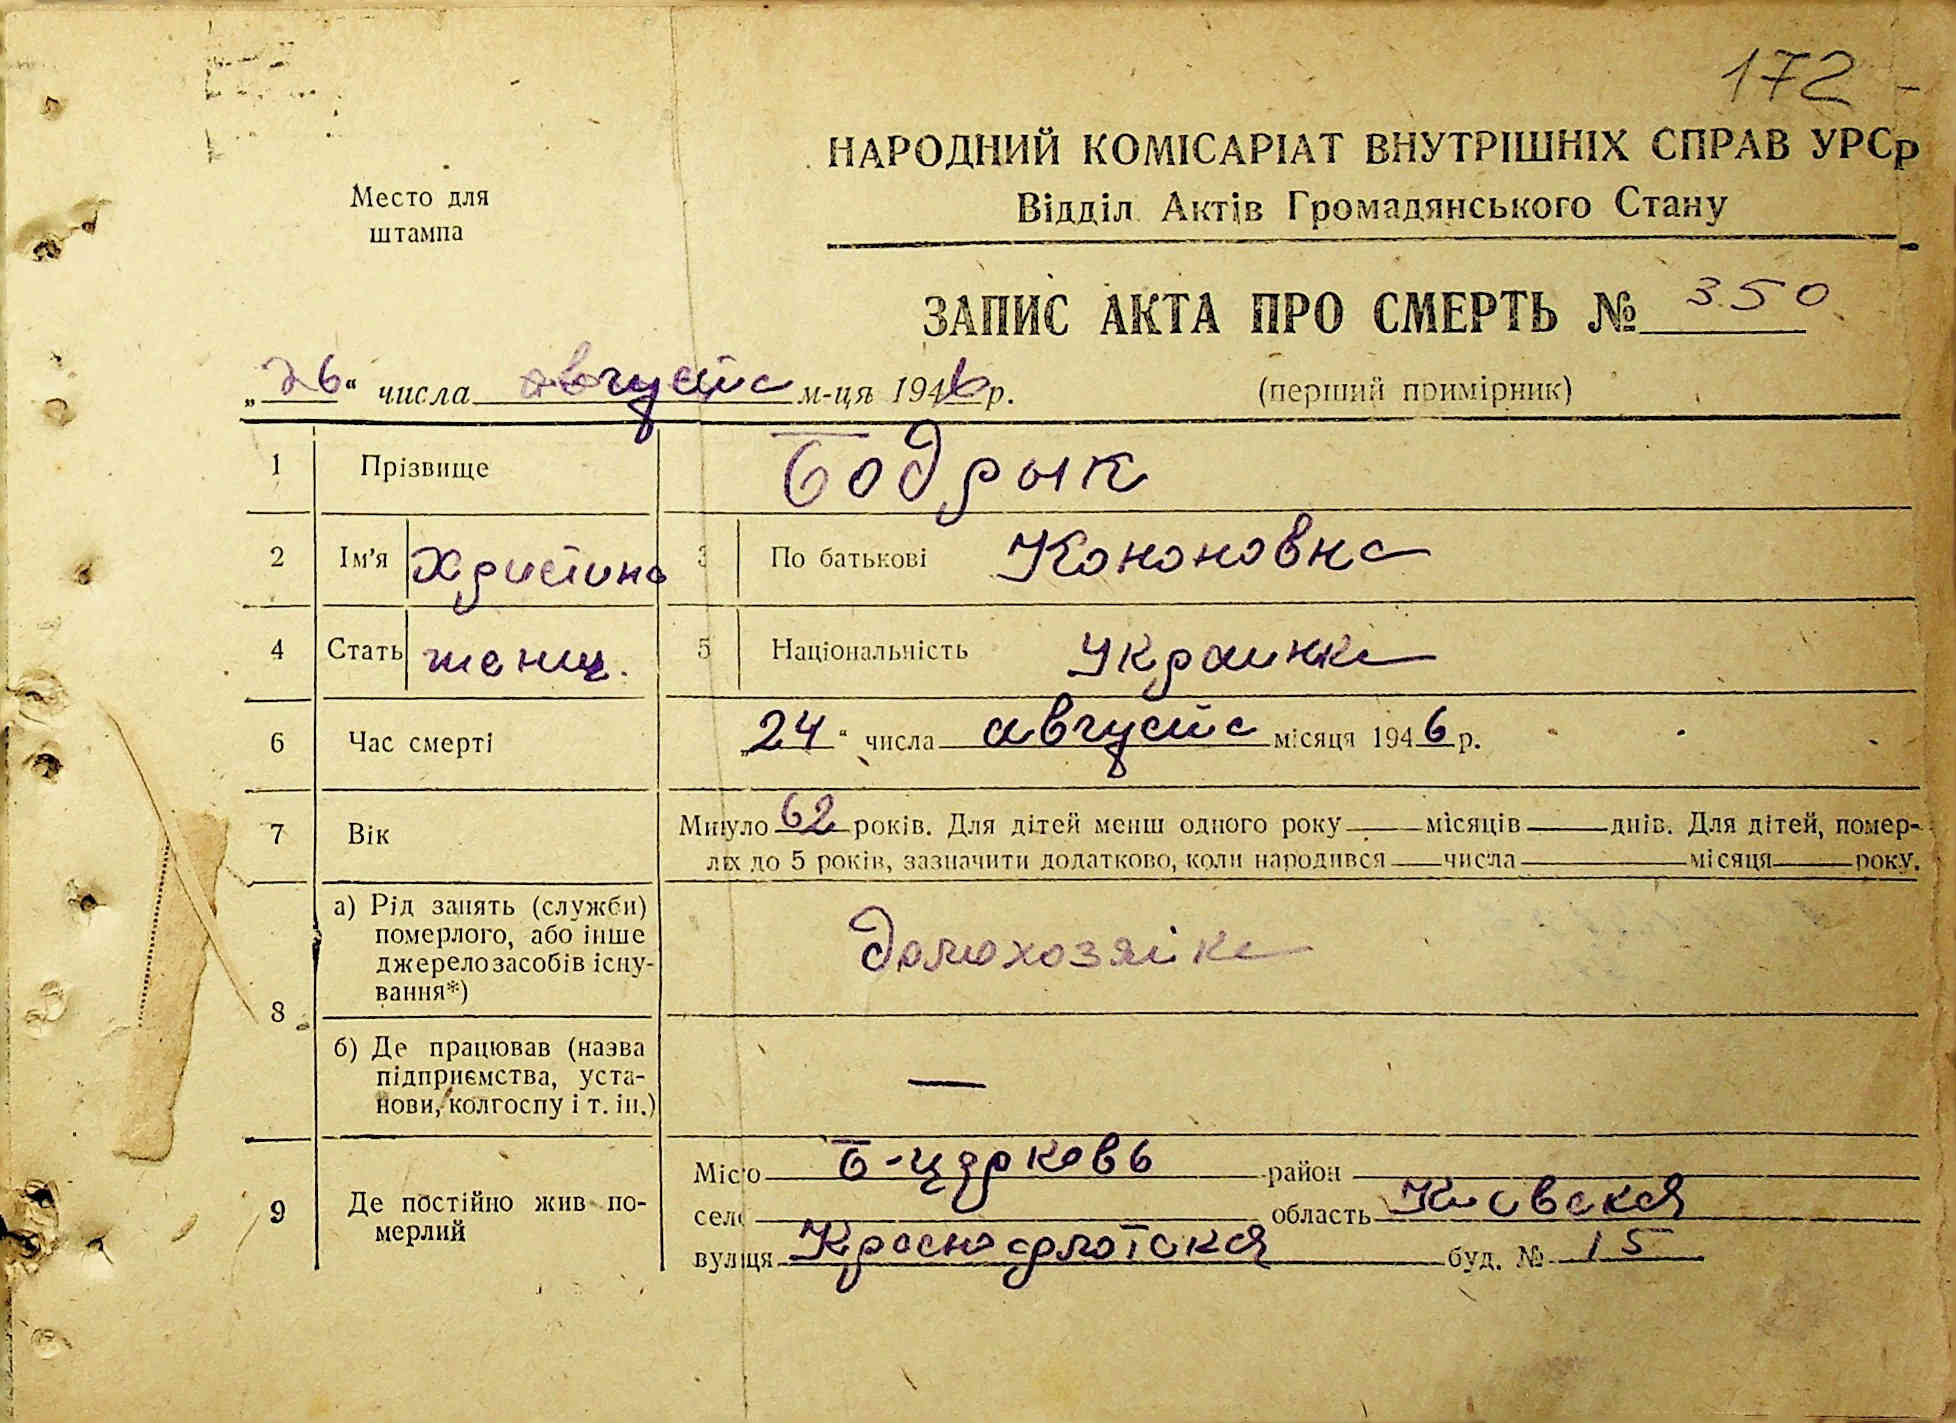 172
НАРОДНИЙ КОМІСАРІАТ ВНУТРІШНІХ СПРАВ УРСР
Відділ Актів Громадянського Стану
Место для
штампа
ЗАПИС АКТА ПРО СМЕРТЬ № 350
„26“ числа августа м-ця 1946 р.
(перший примірник)
1 Прізвище Бодрык
2 Ім'я Христина 3 По батькові Кононовна
4 Стать женщ. 5 Національність Украинка
6 Час смерті „24“ числа августа місяця 1946 р.
7 Вік Минуло 62 років. Для дітей менш одного року місяців днів. Для дітей, помер-
лих до 5 років, зазначити додатково, коли народився числа місяця року.
8 а) Рід занять (служби)
померлого, або інше
джерело засобів існу-
вання*)
домохозяйка
б) Де працював (назва
підприємства, уста-
нови, колгоспу і т. ін.)
—
9 Де постійно жив по-
мерлий
Місто Б-Церковь район
село область Киевская
вулиця Краснофлотская буд. № 15